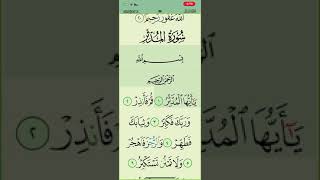 الله غفور رحيم ٢٠
سُورَةُ المُدَّثِّرِ
بِسْمِ اللَّهِ
الرَّحْمَٰنِ الرَّحِيمِ
يَا أَيُّهَا الْمُدَّثِّرُ ١ قُمْ فَأَنذِرْ ٢
وَرَبَّكَ فَكَبِّرْ ٣ وَثِيَابَكَ
فَطَهِّرْ ٤ وَالرُّجْزَ فَاهْجُرْ
٥ وَلَا تَمْنُن تَسْتَكْثِرُ ٦